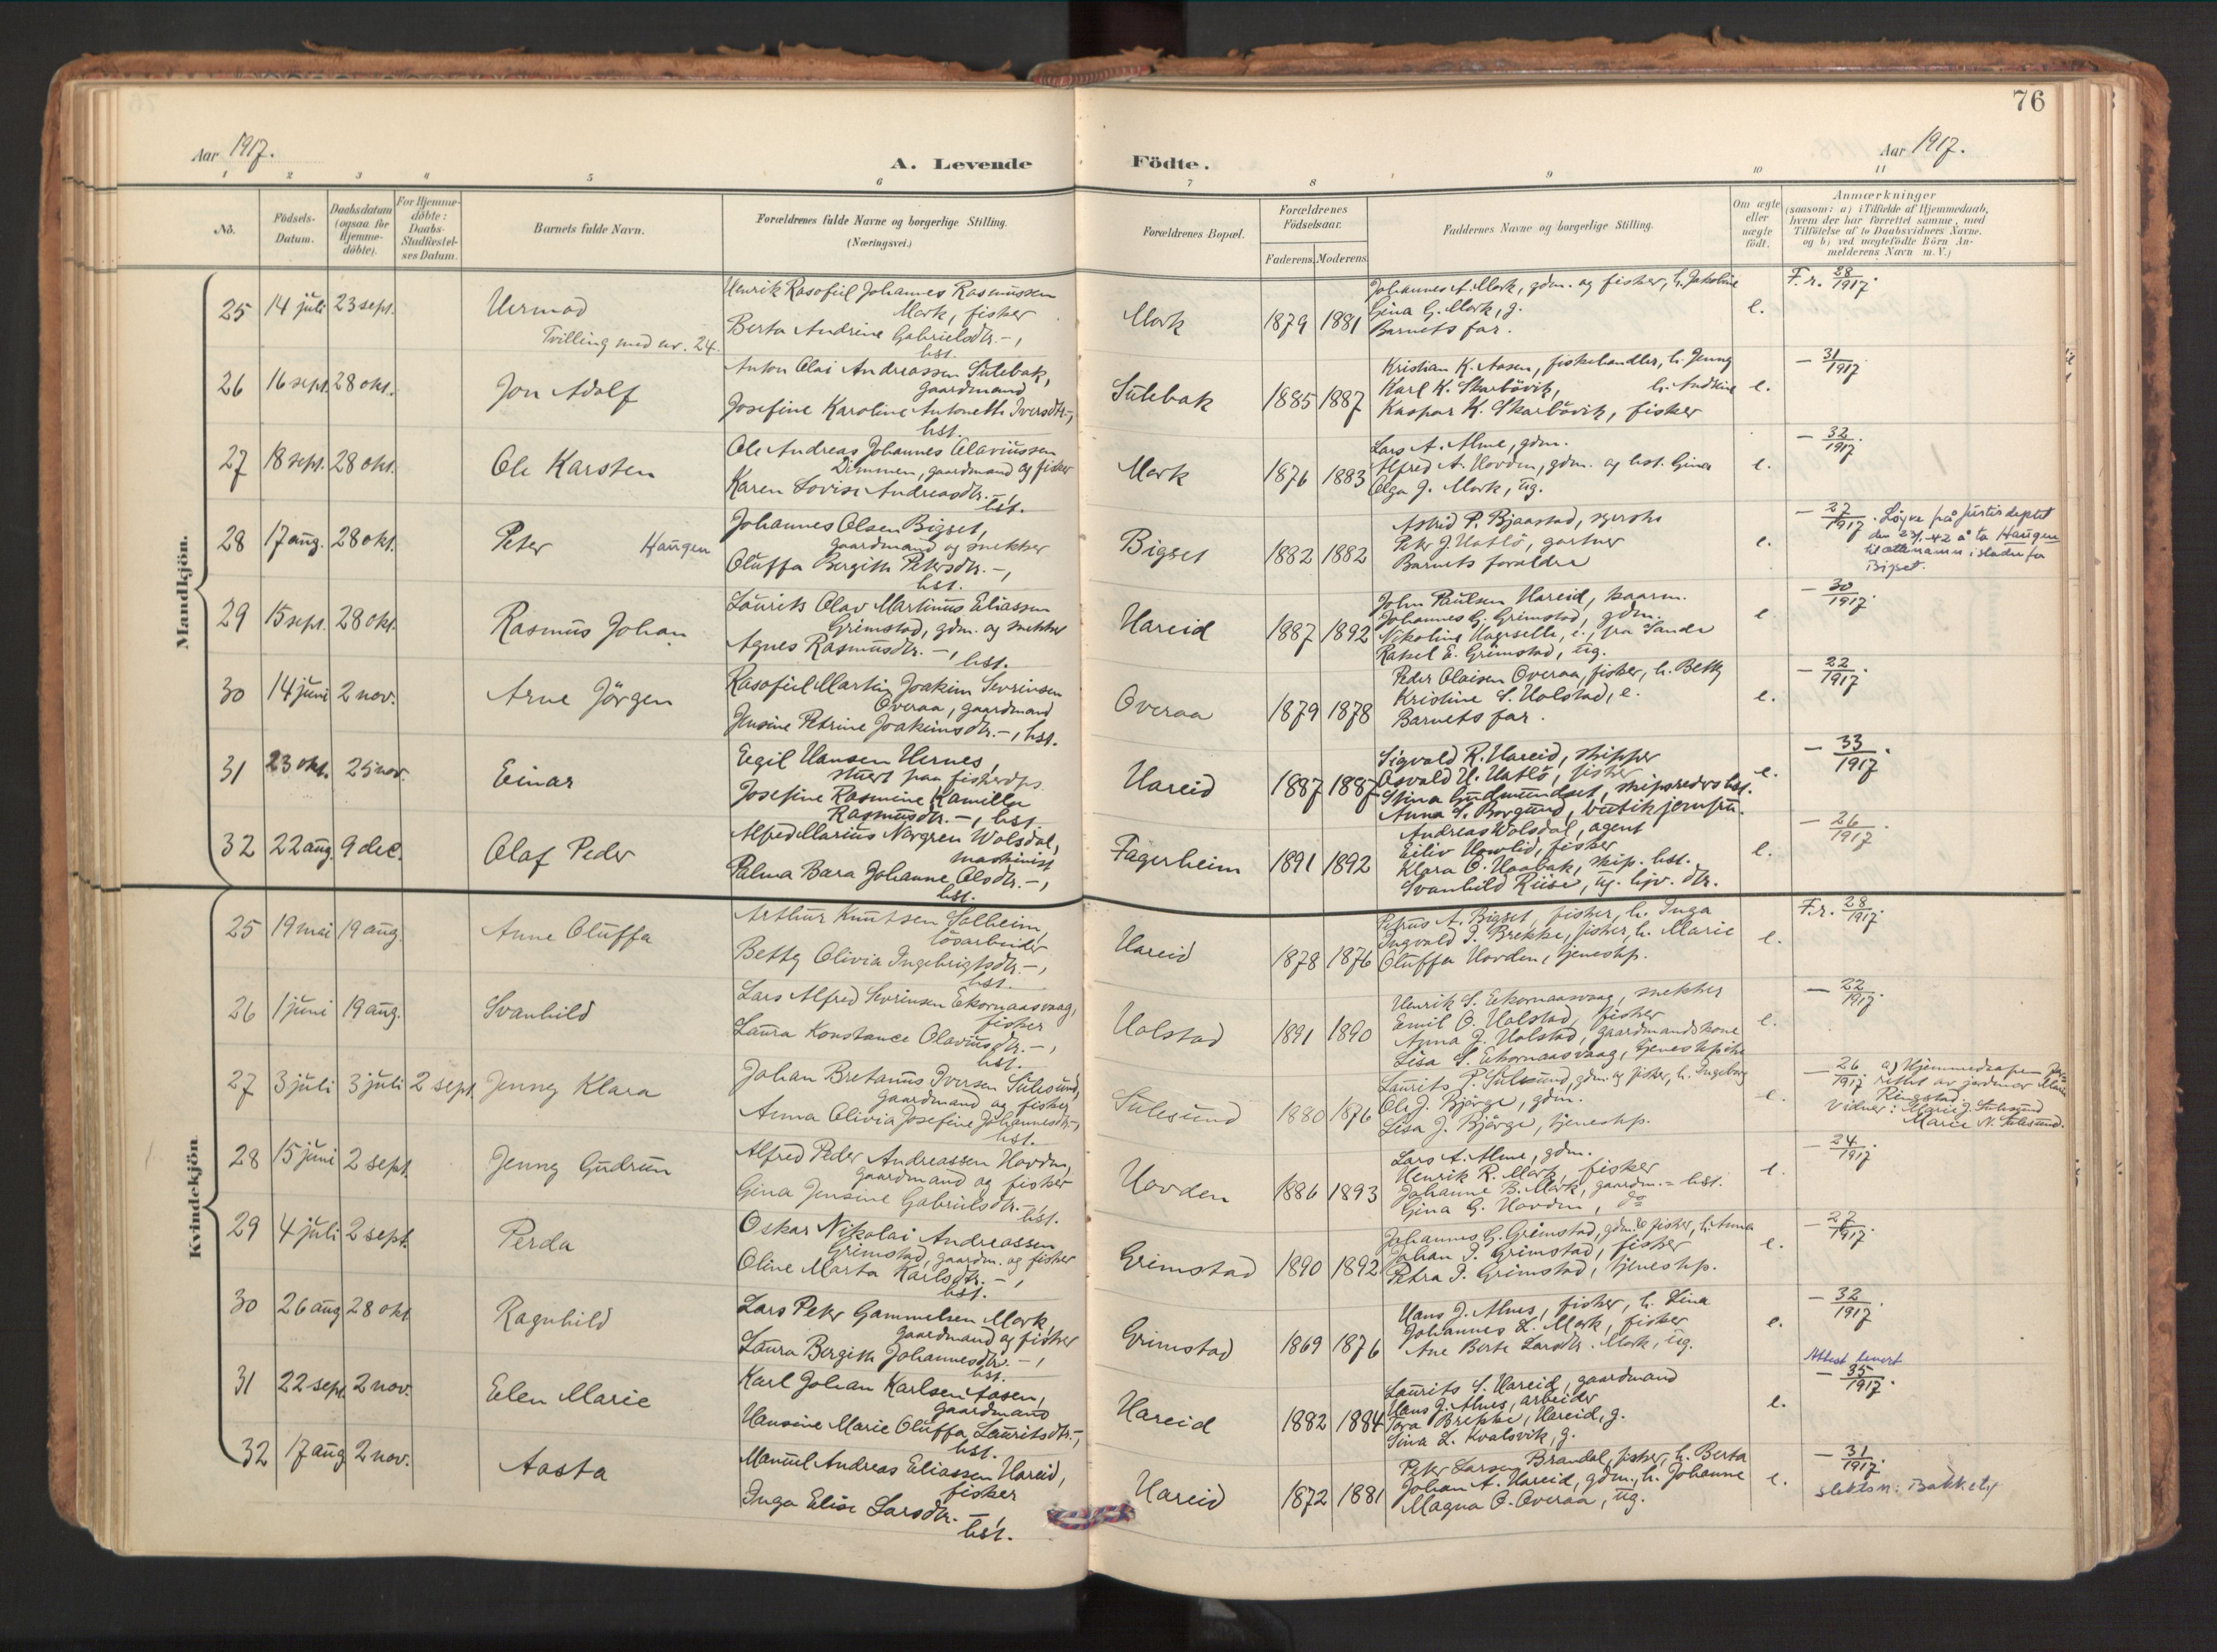 76
Aar 1917.
A. Levende Födte.
Aar 1917.
1 2 3 4 5 6 7 8 9 10 11
No.
Födsels-Datum.
Daabsdatum (ogsaa for Hjemme-döbte).
For Hjemme-döbte: Daabs-Stadfæstel-ses Datum.
Barnets fulde Navn.
Forældrenes fulde Navne og borgerlige Stilling. (Næringsvei.)
Forældrenes Bopæl.
Forældrenes Födselsaar.
Faderens. Moderens.
Faddernes Navne og borgerlige Stilling.
Om ægte eller uægte födt.
Anmærkninger
(saasom: a) i Tilfælde af Hjemmedaab,
hvem der har forrettet samme, med
Tilföielse af to Daabsvidners Navne.
og b) ved uægtefödte Börn An-
melderens Navn m. V.)
Mandkjön.
25 14 juli 23 sept. Hermod
Tvilling med nr. 24.
Henrik Rasofiel Johannes Rasmussen
Mork, fisker
Berta Andrine Gabrielsdtr. -,
hst.
Mork 1879 1881
Johannes A. Mork, gdm. og fisker, h. Jakobine
Gina G. Mork, g.
Barnets far.
e.
F.r. 28/1917.
26 16 sept. 28 okt. Jon Adolf
Anton Olai Andreassen Sulebak,
gaardmand
Josefine Karoline Antonette Iversdtr.-,
hst.
Sulebak 1885 1887
Kristian K. Aasen, fiskehandler, h. Jenny
Karl K. Skarbövik, h. Andrine
Kaspar K. Skarbövik, fisker
e.
- 31/1917.
27 18 sept. 28 okt. Ole Karsten
Ole Andreas Johannes Olavinssen
Dimmen, gaardmand og fisker
Karen Lovise Andreasdtr. -,
hst.
Mork 1876 1883
Lars A. Alme, gdm.
Alfred A. Hovden, gdm. og hst. Gina
Olga J. Mork, ug.
e.
- 32/1917.
28 17 aug. 28 okt. Peter Haugen
Johannes Olsen Bigset,
gaardmand og snekker
Oluffa Bergitte Petersdtr. -,
hst.
Bigset 1882 1882
Astrid P. Bjaastad,
Peter J. Hatlö, gartner
Barnets foreldre
e.
- 27/1917. Löyve frå Justisdeptet
den 23/1-42 å ta Haugen
til ættenamn i staden for
Bigset.
29 15 sept. 28 okt. Rasmus Johan
Laurits Olav Martinus Eliassen
Grimstad, gdm. og snekker
Agnes Rasmusdtr. -,
hst.
Hareid 1887 1892
John Paulsen Hareid, kaarm.
Johannes G. Grimstad, gdm.
Nikoline Hagesæth, e., fra Sande
Rakel E. Grimstad, ug.
e.
- 30/1917.
30 14 juni 2 nov. Arne Jörgen
Rasofiel Martin Joakim Sevrinsen
Overaa, gaardmand
Jensine Petrine Joakimsdtr. -, hst.
Overaa 1879 1878
Peder Olaisen Overaa, fisker, h. Betty
Kristine S. Holstad, e.
Barnets far.
e.
- 22/1917.
31 23 okt. 25 nov. Einar
Eegil Hansen Hernes,
stuert paa fiskedps.
Josefine Rasmine Kamilla
Rasmusdtr. -, hst.
Hareid 1887 1887
Sigvald R. Hareid, skipper
Osvald H. Hatlö, fisker
Stina Gudmundset, skipsreders hst.
Anna S. Borgund, butikjomfru.
e.
- 33/1917.
32 22 aug. 9 dec. Olaf Peder
Alfred Marius Norgren Wolsdal,
maskinist
Palma Bara Johanne Olsdtr. -,
hst.
Fagerheim 1891 1892
Andreas Wolsdal, agent
Eiliv Howlid, fisker
Klara O. Haabak, skip. hst.
Svanhild Riise, ug. dtr.
e.
- 26/1917.
Kvindekjön.
25 19 mai 19 aug. Anne Oluffa
Arthur Knutsen Solheim,
lösarbeider
Betty Olivia Ingebrigtsdtr. -,
hst.
Hareid 1878 1876
Petrus A. Bigset, fisker, h. Inga
Ingvald I. Brekke, fisker, h. Marie
Oluffa Hovden, tjenestp.
e.
F.r. 28/1917.
26 1 juni 19 aug. Svanhild
Lars Alfred Sevrinsen Ekornaasvaag,
fisker
Laura Konstance Olavusdtr. -,
hst.
Holstad 1891 1890
Henrik S. Ekornaasvaag, snekker
Emil O. Holstad, fisker
Anna J. Holstad, gaardmandskone
Lisa S. Ekornaasvaag, tjenestpike
e.
- 22/1917.
27 3 juli 3 juli 2 sept. Jenny Klara
Johan Bretanus Iversen Sulesund,
gaardmand og fisker
Anna Olivia Josefine Johannesdtr.-,
hst.
Sulesund 1880 1876
Laurits P. Sulesund, gdm. og fisker, h. Ingeborg
Ole J. Björge, gdm.
Lisa J. Björge, tjenestp.
e.
- 26/1917. a) Hjemmedaapen for-
rettet av jordmor Marie
Ringstad.
Vidner: Marie J. Sulesund
Marie N. Sulesund.
28 15 juni 2 sept. Jenny Gudrun
Alfred Peder Andreassen Hovden,
gaardmand og fisker
Gina Jensine Gabrielsdtr. -
hst.
Hovden 1886 1893
Lars A. Alme, gdm.
Henrik R. Mork, fisker
Johanne B. Mork, gaardm. = hst.
Gina G. Hovden, do
e.
- 24/1917.
29 4 juli 2 sept. Perda
Oskar Nikolai Andreassen
Grimstad, gaardm. og fisker
Oline Marta Karlsdtr. -,
hst.
Grimstad 1890 1892
Johannes G. Grimstad, gdm. & fisker, h. Anna
Johan I. Grimstad, fisker
Petra I. Grimstad, tjenestp.
e.
- 27/1917.
30 26 aug 28 okt Ragnhild
Lars Peter Gammelsen Mork,
gaardmand og fisker
Laura Bergitte Johannesdtr. -,
hst.
Grimstad 1869 1876
Hans J. Alnes, fisker, h. Lina
Johannes L. Mork, fisker
Ane Berte Larsdtr. Mork, ug.
e.
- 32/1917.
31 22 sept. 2 nov. Elen Marie
Karl Johan Karlsen Aasen,
gaardmand
Hansine Marie Oluffa Lauritsdtr.-,
hst.
Hareid 1882 1884
Laurits S. Hareid, gaardmand
Hans J. Alnes, arbeider
Tora Brekke, Hareid, g.
Sina L. Kvalsvik, g.
e.
Attest levert
- 35/1917.
32 17 aug 2 nov. Aasta
Manuel Andreas Eliassen Hareid,
fisker
Inga Elise Larsdtr. -,
hst.
Hareid 1872 1881
Peter Larsen Brandal, fisker, h. Berta
Johan A. Hareid, gdm., h. Johanne
Magna O. Overaa, ug.
e.
- 31/1917.
slektsn: Bakketeig